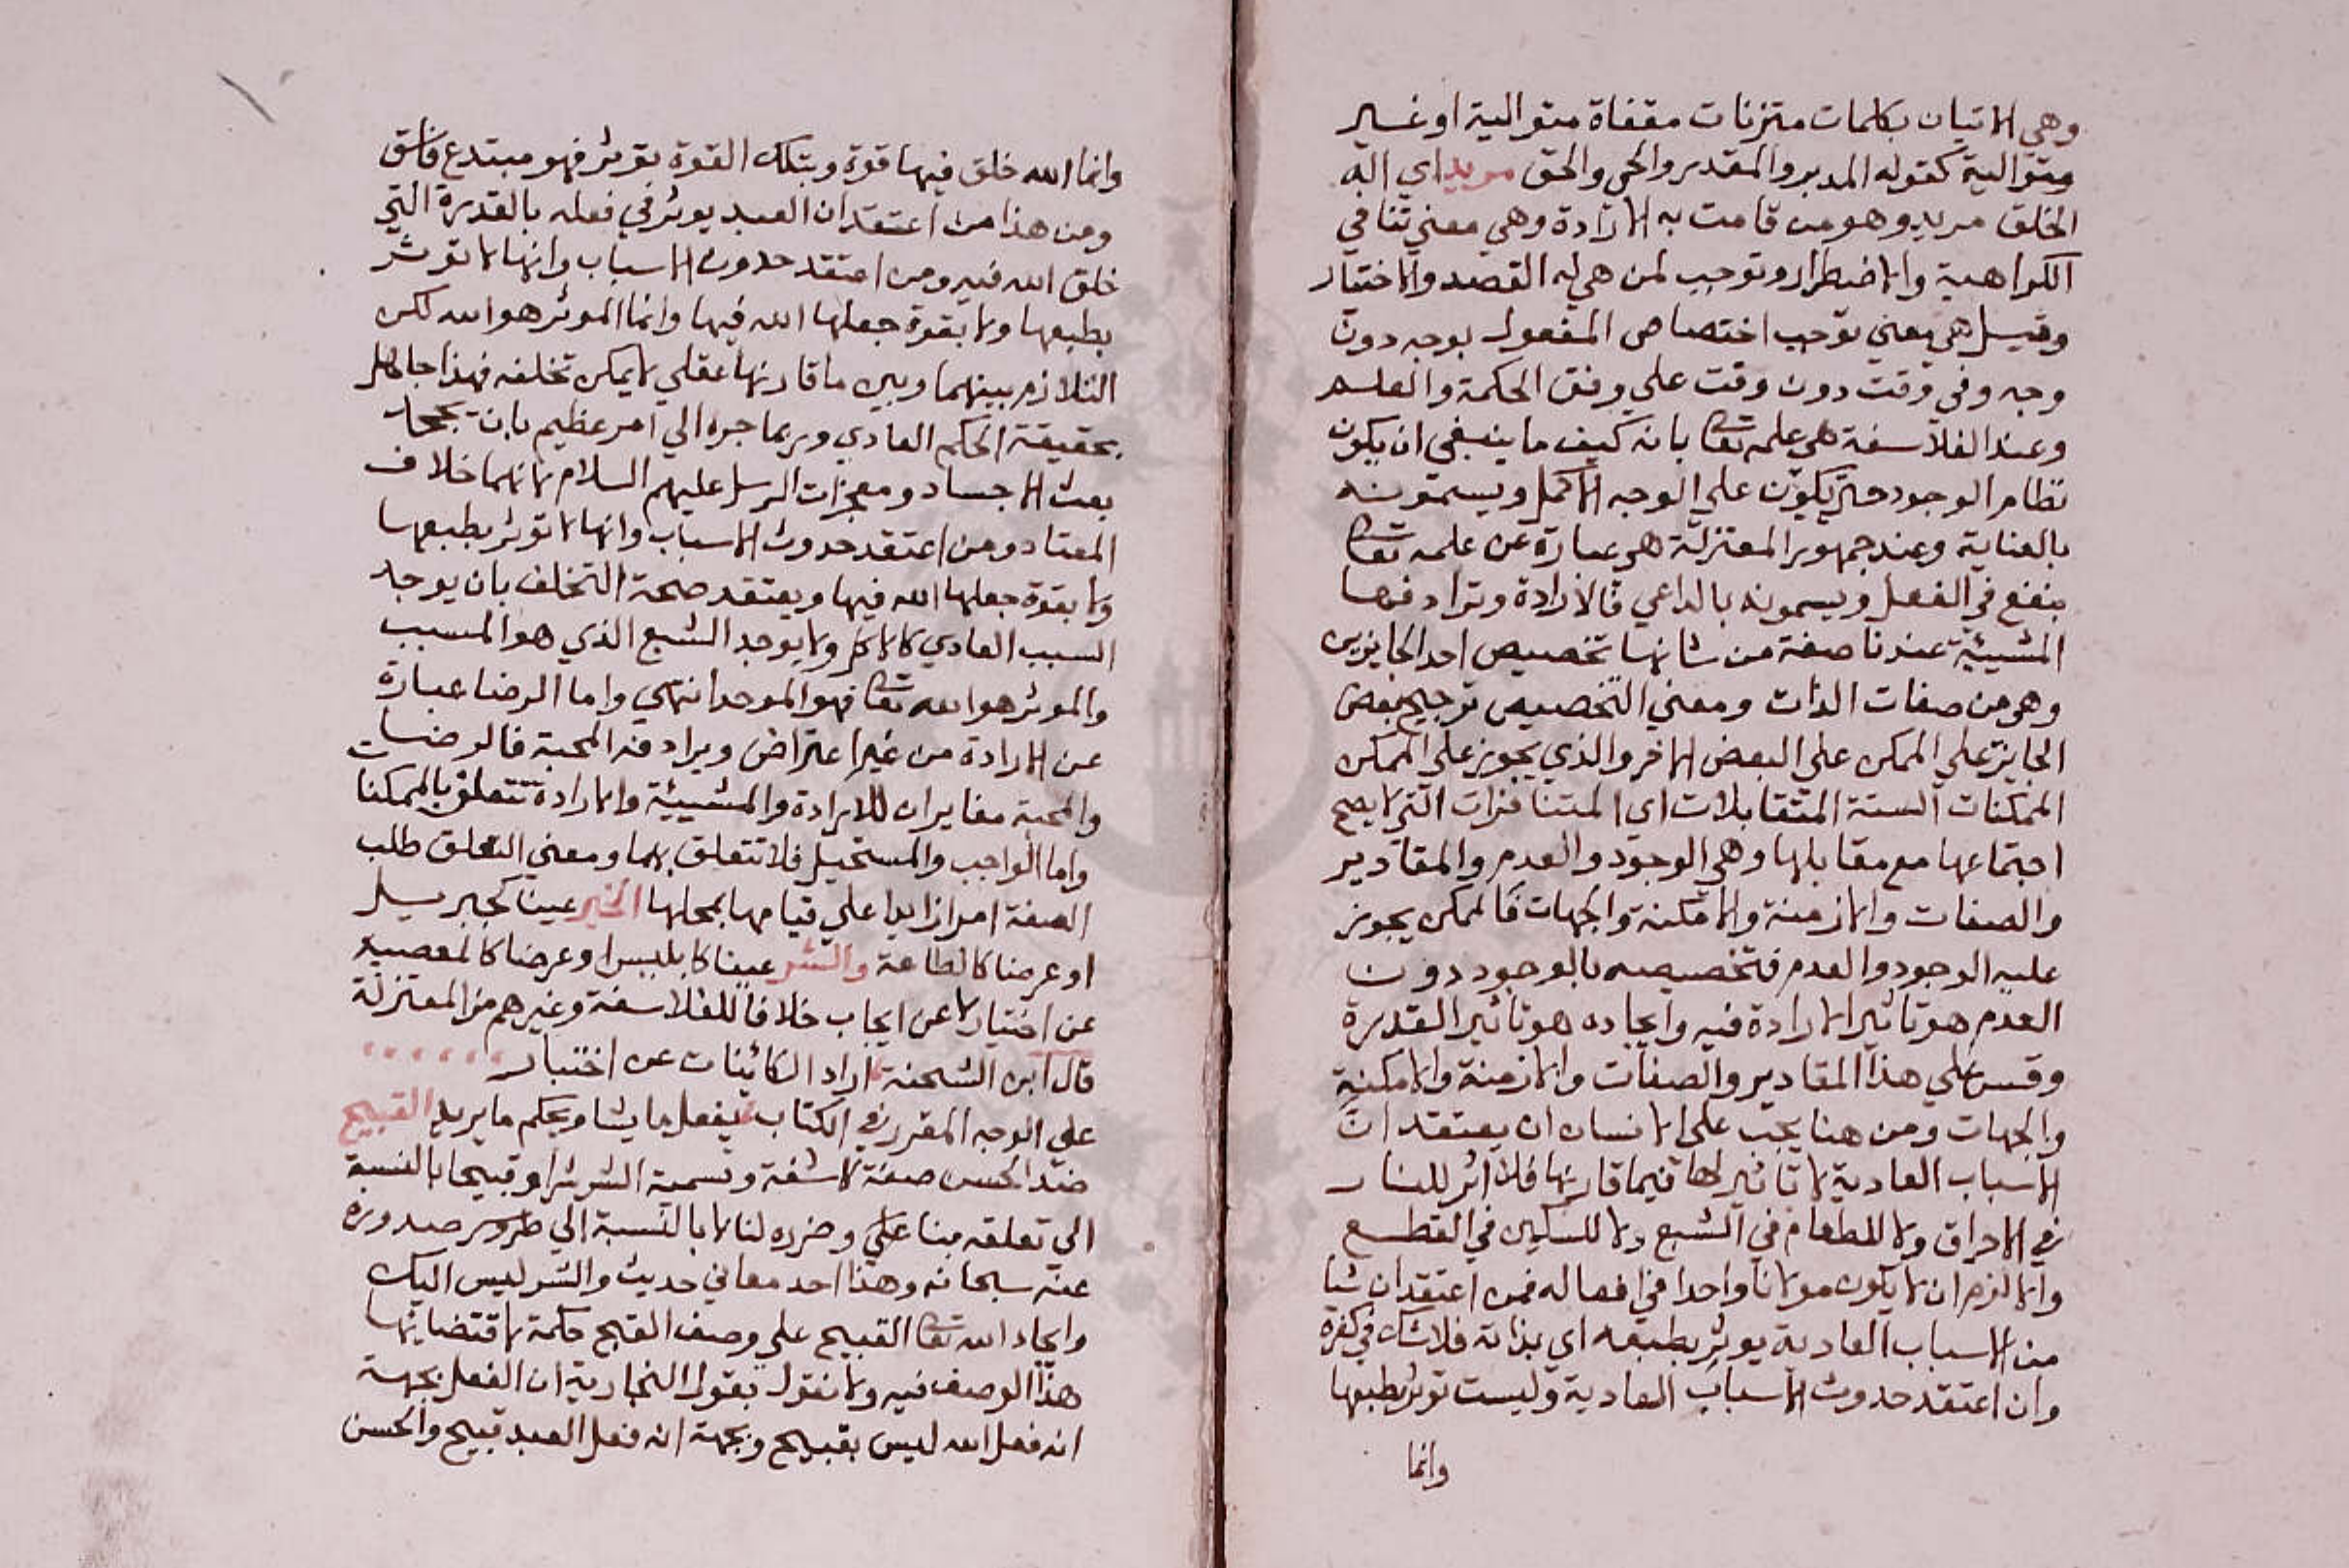 وهي الاتيان بكلمات متزنات مقفاة متوالية او غير
متوالية كقوله المدبر والمقدر والحي والحق مريد اي اله
الخلق مريد وهو من قامت به الارادة وهي معني تنافي
الكراهية والاضطرار وتوجب لمن هي له القصد والاختيار
وقيل هي معني توجب اختصاص المفعول بوجه دون
وجه وفي وقت دون وقت علي وفق الحكمة والعلم
وعند الفلاسفة هي علمه تعا بانه كيف ما ينبغي ان يكون
نظام الوجود حتي يكون علي الوجه الاكمل ويسمونه
بالعناية وعند جمهور المعتزلة هي عبارة عن علمه تعا
بنفع في الفعل ويسمونه بالداعي فالارادة وترادفها
المشيئة عندنا صفة من شانها تخصيص احد الجايزين
وهو من صفات الذات ومعني التخصيص ترجيح بعض
الجايز علي الممكن علي البعض الاخر والذي يجوز علي الممكن
الممكنات الستة المتقابلات اي المتنافرات التي لا يصح
اجتماعها مع مقابلها وهي الوجود والعدم والمقادير
والصفات والازمنة والامكنة والجهات فالممكن يجوز
عليه الوجود والعدم فتخصيصه بالوجود دون
العدم هو تاثير الارادة فيه وايجاده هو تاثير القدرة
وقس علي هذا المقادير والصفات والازمنة والامكنة
والجهات ومن هنا يجب علي الانسان ان يعتقد ان
الاسباب العادية لا تاثير لها فيما قارنها فلا اثر للنار
في الاحراق ولا للطعام في الشبع ولا للسكين في القطع
والا لزم ان لا يكون مولانا واحدا في افعاله فمن اعتقد ان شيا
من الاسباب العادية يوثر بطبعه اي بذاته فلا شك في كفره
وان اعتقد حدوث الاسباب العادية وليست توثر بطبعها
وانما
وانما الله خلق فيها قوة وبتلك القوة توثر فهو مبتدع فاسق
ومن هذا من اعتقد ان العبد يوثر في فعله بالقدرة التي
خلق الله فيه ومن اعتقد حدوث الاسباب وانها لا توثر
بطبعها ولا بقوة جعلها الله فيها وانما الموثر هو الله لكن
التلازم بينهما وبين ما قارنها عقلي لا يمكن تخلفه فهذا جاهل
بحقيقة الحكم العادي وربما جره الي امر عظيم بان يجحد
بعث الاجساد ومعجزات الرسل عليهم السلام لانهما خلاف
المعتاد ومن اعتقد حدوث الاسباب وانها لا توثر بطبعها
ولا بقوة جعلها الله فيها ويعتقد صحة التخلف بان يوجد
السبب العادي كالاكل ولا يوجد الشبع الذي هو المسبب
والموثر هو الله تعا فهو الموحد انتهي واما الرضا عبارة
عن الارادة من غير اعتراض ويرادفه المحبة فالرضا
والمحبة مغايران للارادة والمشيئة والارادة تتعلق بالممكنات
واما الواجب والمستحيل فلا تتعلق بهما ومعني التعلق طلب
الصفة امرا زايدا علي قيامها بمحلها الخير عينا كجبريل
او عرضا كالطاعة والشر عينا كابليس او عرضا كالمعصية
عن اختيار لا عن ايجاب خلافا للفلاسفة وغيرهم من المعتزلة
قال ابن الشحنة اراد الكائينات عن اختيار
علي الوجه المقرر في الكتاب يفعل ما يشا ويحكم ما يريد القبيح
ضد الحسن صفة كاشفة وتسمية الشر شرا وقبيحا بالنسبة
الي تعلقه بنا علي وضرره لنا لا بالنسبة الي صدوره
عنه سبحانه وهذا احد معاني حديث والشر ليس اليك
وايجاد الله تعا القبيح علي وصف القبح حكمة لاقتضائها
هذا الوصف فيه ولا نقول بقول النجارية ان الفعل بجهة
انه فعل الله ليس بقبيح وبجهة انه فعل العبد قبيح والحسن